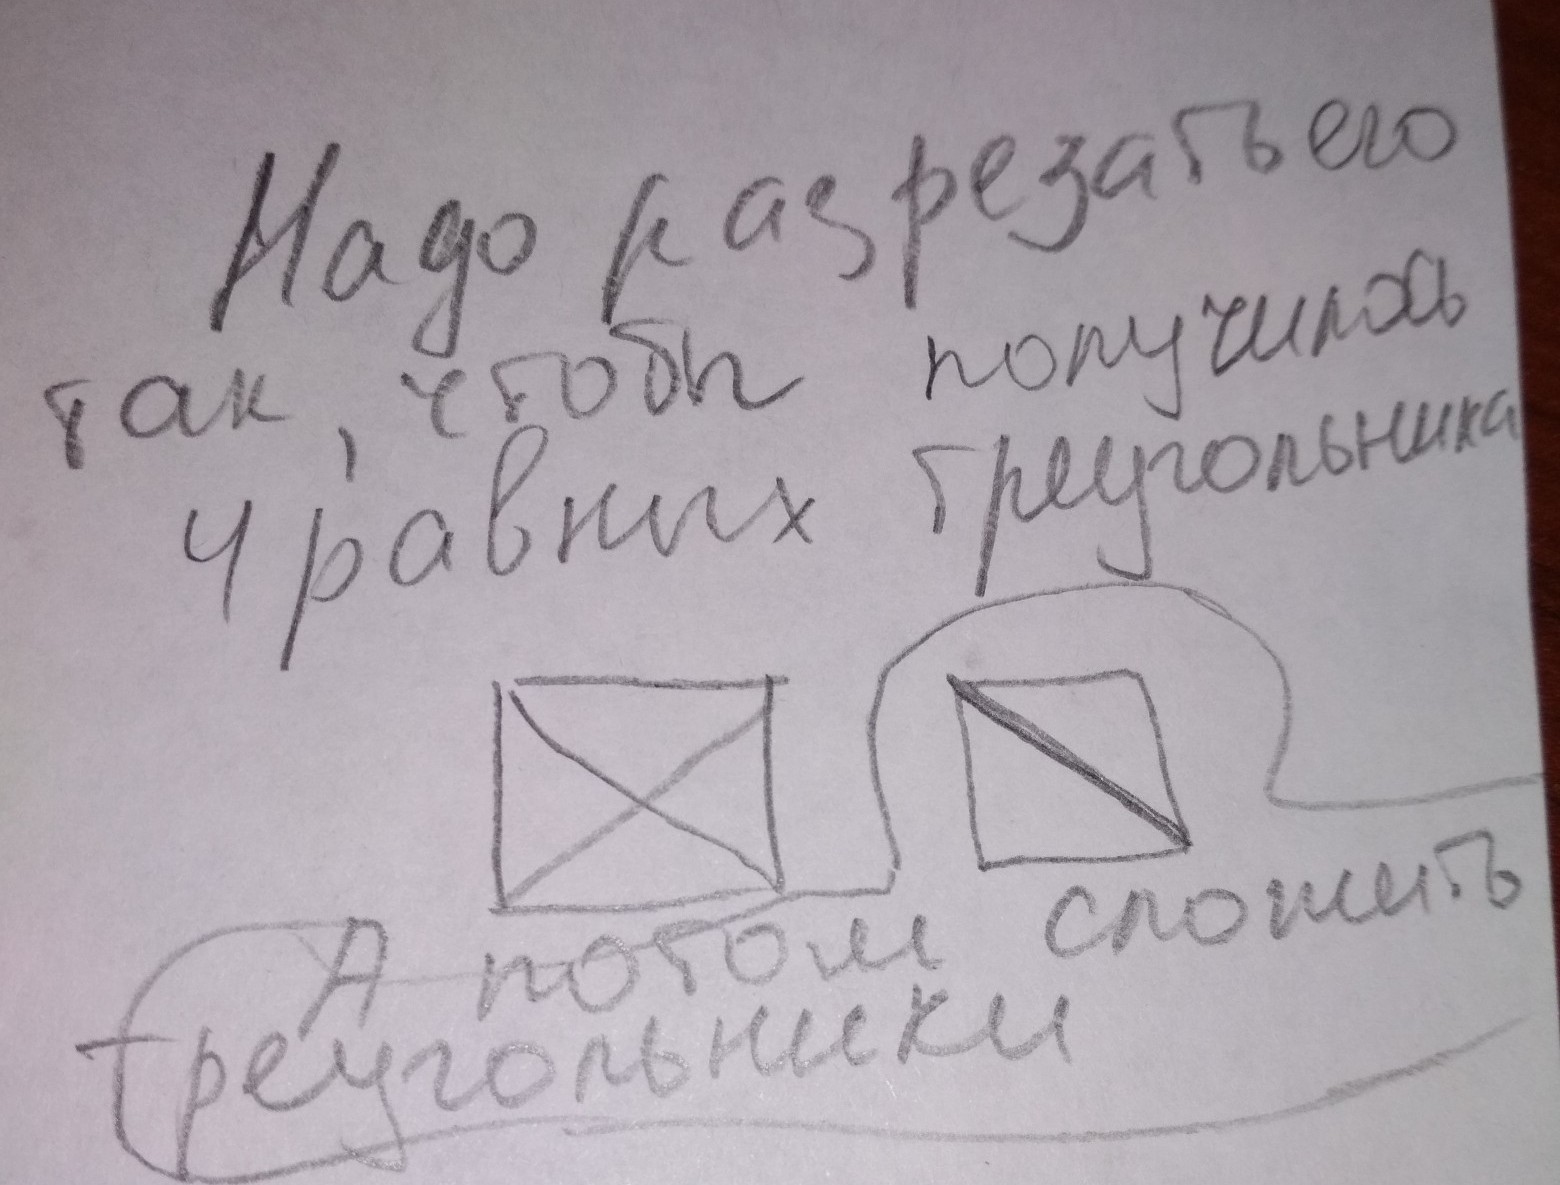 Надо разрезать его
так, чтобы получилось
4 равных треугольника
А потом сложить
треугольники